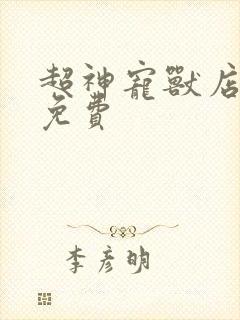 超神寵獸店
免費
李彥明